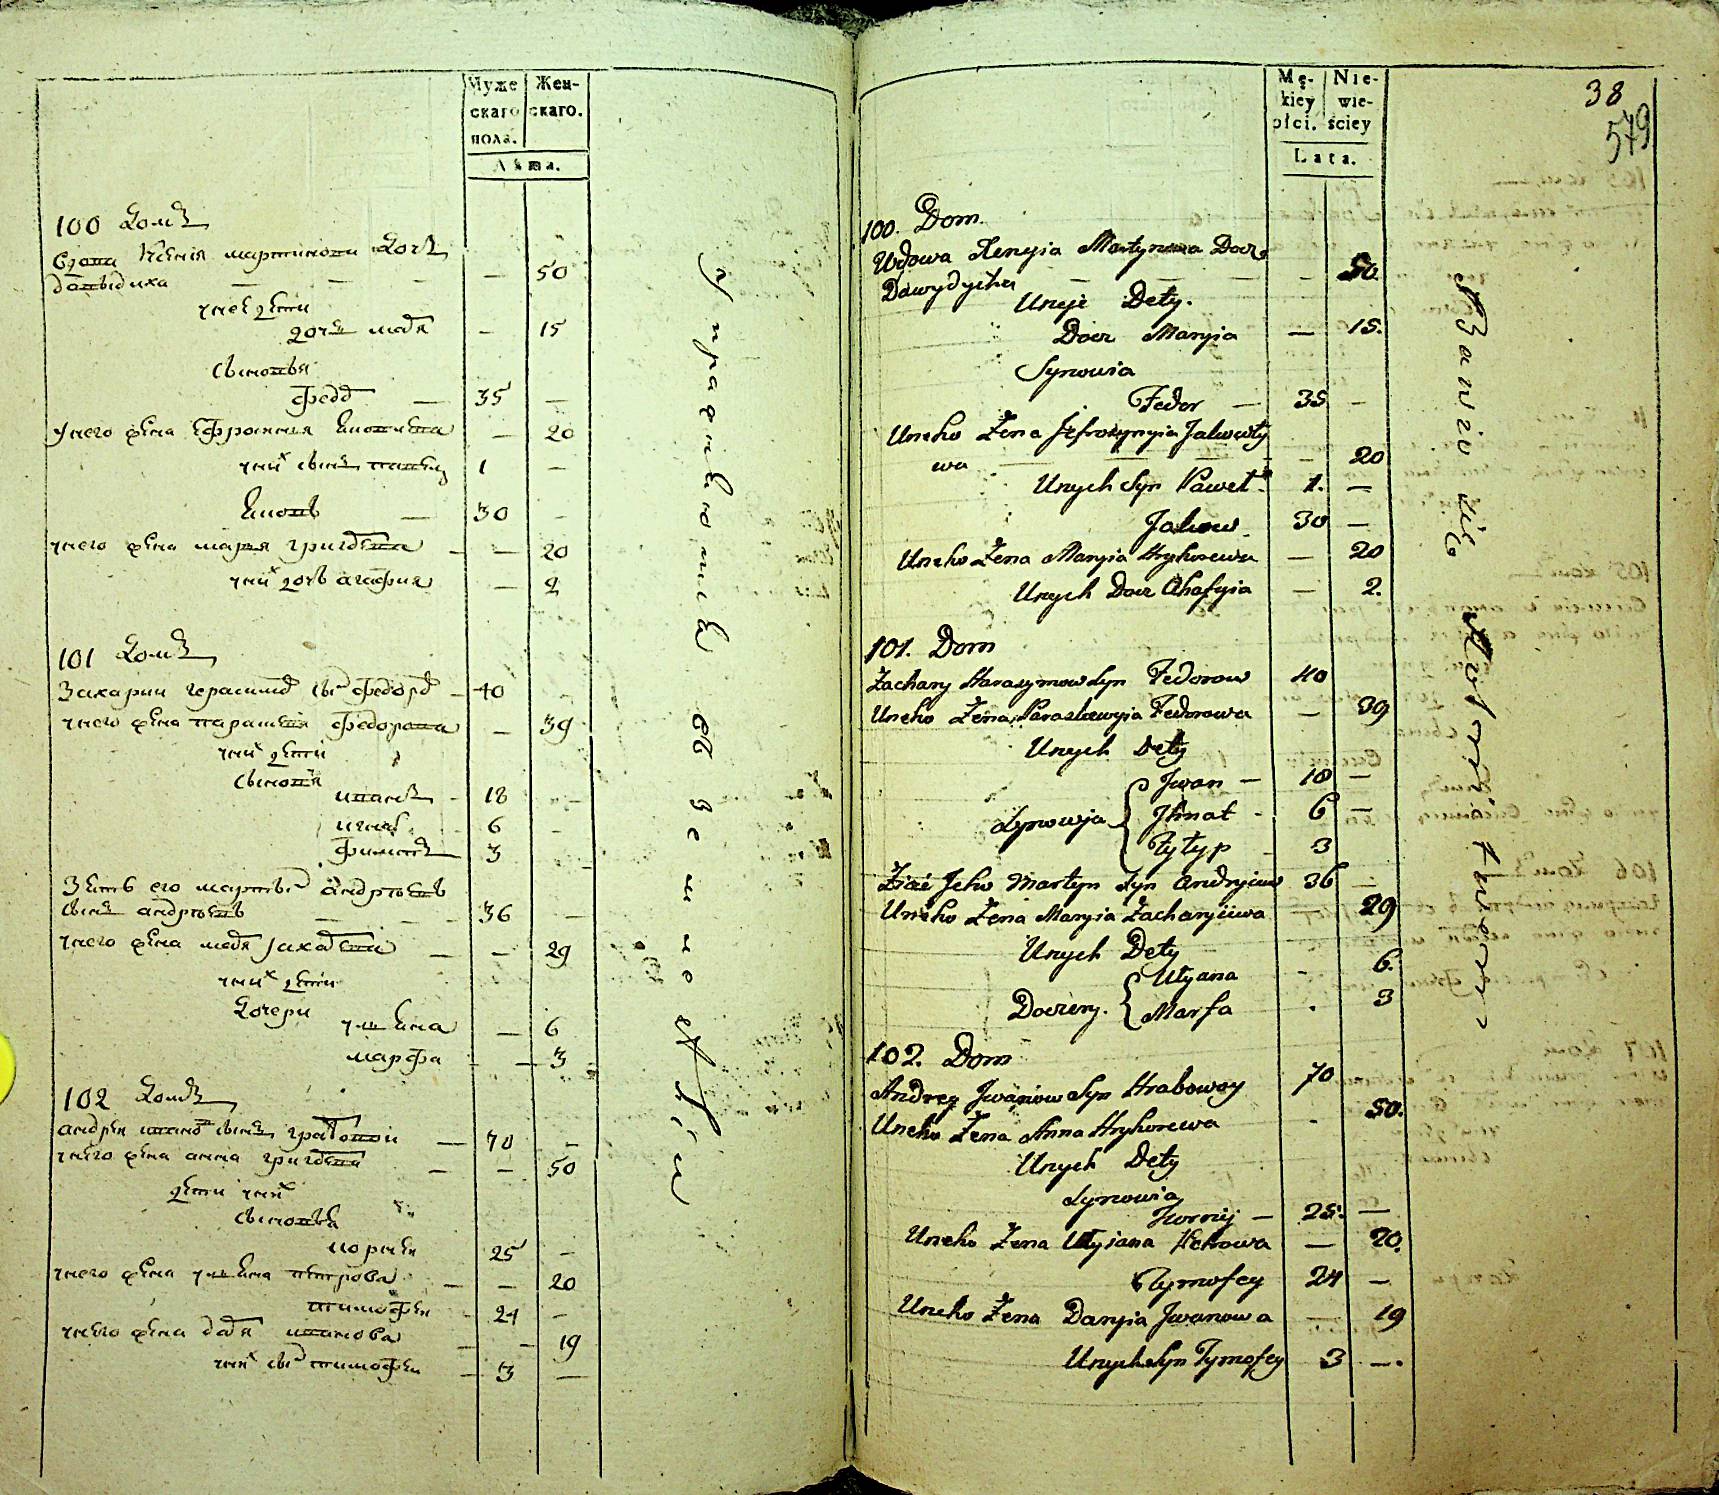 Муже
скаго
пола.
Жен-
скаго.
Лѣта.
100 Домъ
Вдова Ксенія мартинова Дочь
давыдиха — 50
унее дети
дочь марья — 15
сыновья
федор — 35 —
унего жена Ефросиния Яковлева — 20
уних сынъ павелъ 1 —
Яковъ — 30 —
унего жена марья григорева — — 20
уних дочь агафия — 2
101 Домъ
Захарии герасимов сынъ федоров — 40
унего жена параскевия федорова — 39
уних дети
сыновя
иванъ — 18 —
игнат 6 —
филипъ 3 —
Зять его мартын андрѣевъ
сынъ андрѣевъ — — 36 —
унего жена марья захарева — — 29
уних дети
Дочери
улияна — 6
марфа — 3
102 Домъ
андрей иванов сынъ грабовои — 70 —
унего жена анна григорева — — 50
дети уних
сыновья
корней 25 —
унего жена улияна петрова — — 20
тимофеи — 24 —
унего жена дарья иванова — — 19
уних сынъ тимофеи — 3 —
Mę-
kiey
płci.
Nie-
wie-
ściey
Lata.
38
579
100. Dom.
Wdowa Xenyia Martynowa Docz
Dawydycha — — — — 50.
Uneje Dety.
Docz Maryia — 15.
Synowia
Fedor — 35 —
Uneho Žena Jefrozynyia Jakowły
wa — — — 20
Unych Syn Paweł 1. —
Jakow 30 —
Uneho Žena Maryia Hryhorewa — 20
Unych Docz Ahafyia — 2.
101. Dom
Zachary Harasymow Syn Fedorow 40
Uneho Žena Paraskewyia Fedorowa — 39
Unych Dety
Jwan — 18 —
Synowja Jhnat - 6 —
Pyłyp 3
Ziać Jeho Martyn Syn Andryiew 36 —
Uneho Žena Maryia Zacharyiiwa 29
Unych Dety
Ulyana - 6.
Doczery. Marfa . 3
102. Dom
Andrey Jwanow Syn Hrabowoy 70
Uneho Žena Anna Hryhorewa - 50.
Unych Dety
Synowia
Kornij — 25. —
Uneho Žena Ulyiana Petrowa — 20.
Tymofey 24 —
Uneho Žena Daryia Jwanowa — 19
Unych Syn Tymofey 3 —.